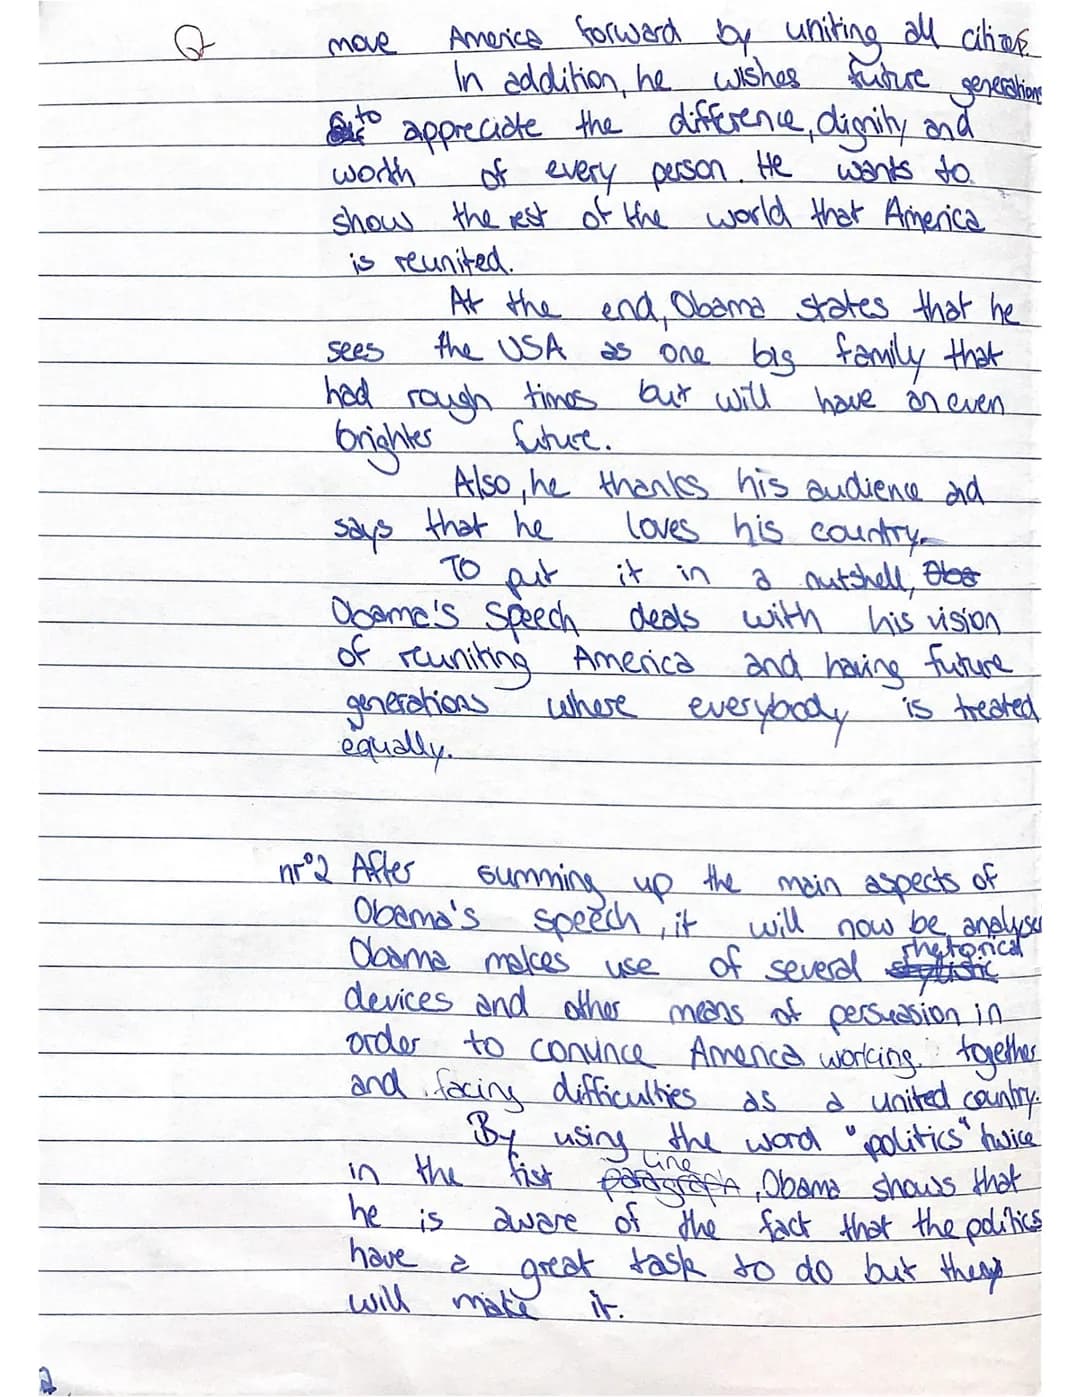 move America forward by uniting all citizens.
In addition, he wishes future generations
to appreciate the difference, dignity and
worth of every person. He wants to
show the rest of the world that America
is reunited.
At the end, Obama states that he
sees the USA as one big family that
had rough times but will have an even
brighter future.
Also, he thanks his audience and
says that he loves his country.
To put it in a nutshell, Oba
Obama's speech deals with his vision
of reuniting America and having future
generations where everybody is treated
equally.
nr°2 After summing up the main aspects of
Obama's speech, it will now be analysed
rhetorical
Obama makes use of several stylistic
devices and other means of persuasion in
order to convince America working together
and facing difficulties as a united country.
By using the word "politics" twice
line
in the fist paragraph, Obama shows that
he is aware of the fact that the politics
have a great task to do but they
will make it.
2